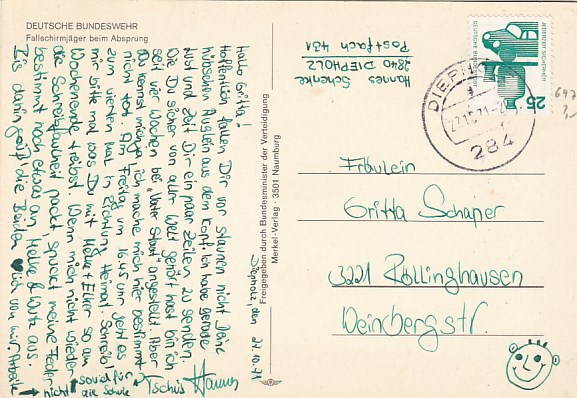 DEUTSCHE BUNDESWEHR
Fallschirmjäger beim Absprung
Hannes Schenke
2840 DIEPHOLZ
Postfach 431
Diepholz, den 27.10.71
Hallo Gritta!
Hoffentlich fallen Dir vor staunen nicht Deine
Äuglein aus dem Kopf. Ich habe gerade
Lust und Zeit Dir ein paar Zeilen zu senden.
Wie Du sicher von aller Welt gehört hast bin ich
seit vier Wochen bei "Vater Staat" angestellt. Aber
Du kannst mich ich mache mich hier bestimmt
nicht tot. Am Freitag um 16 Uhr geht es
zum vierten mal in Richtung Heimat. Schreibe
mir bitte mal was Du mit Heike + Elker so am
Wochenende treibst. Wenn mich nicht wieder
die Schreibfaulheit packt spuckt meine Feder
bestimmt noch etwas an Heike & Wutz aus.
Bis dahin
soviel für
nicht die Schule
Tschüs Hannes
Freigegeben durch Bundesminister der Verteidigung
Merkel-Verlag · 3501 Naumburg
DEUTSCHE BUNDESPOST
JEDERZEIT SICHERHEIT
25
DIEPHOLZ
27.10.71
284
Fräulein
Gritta Schaper
3221 Röllinghausen
Weinbergstr.